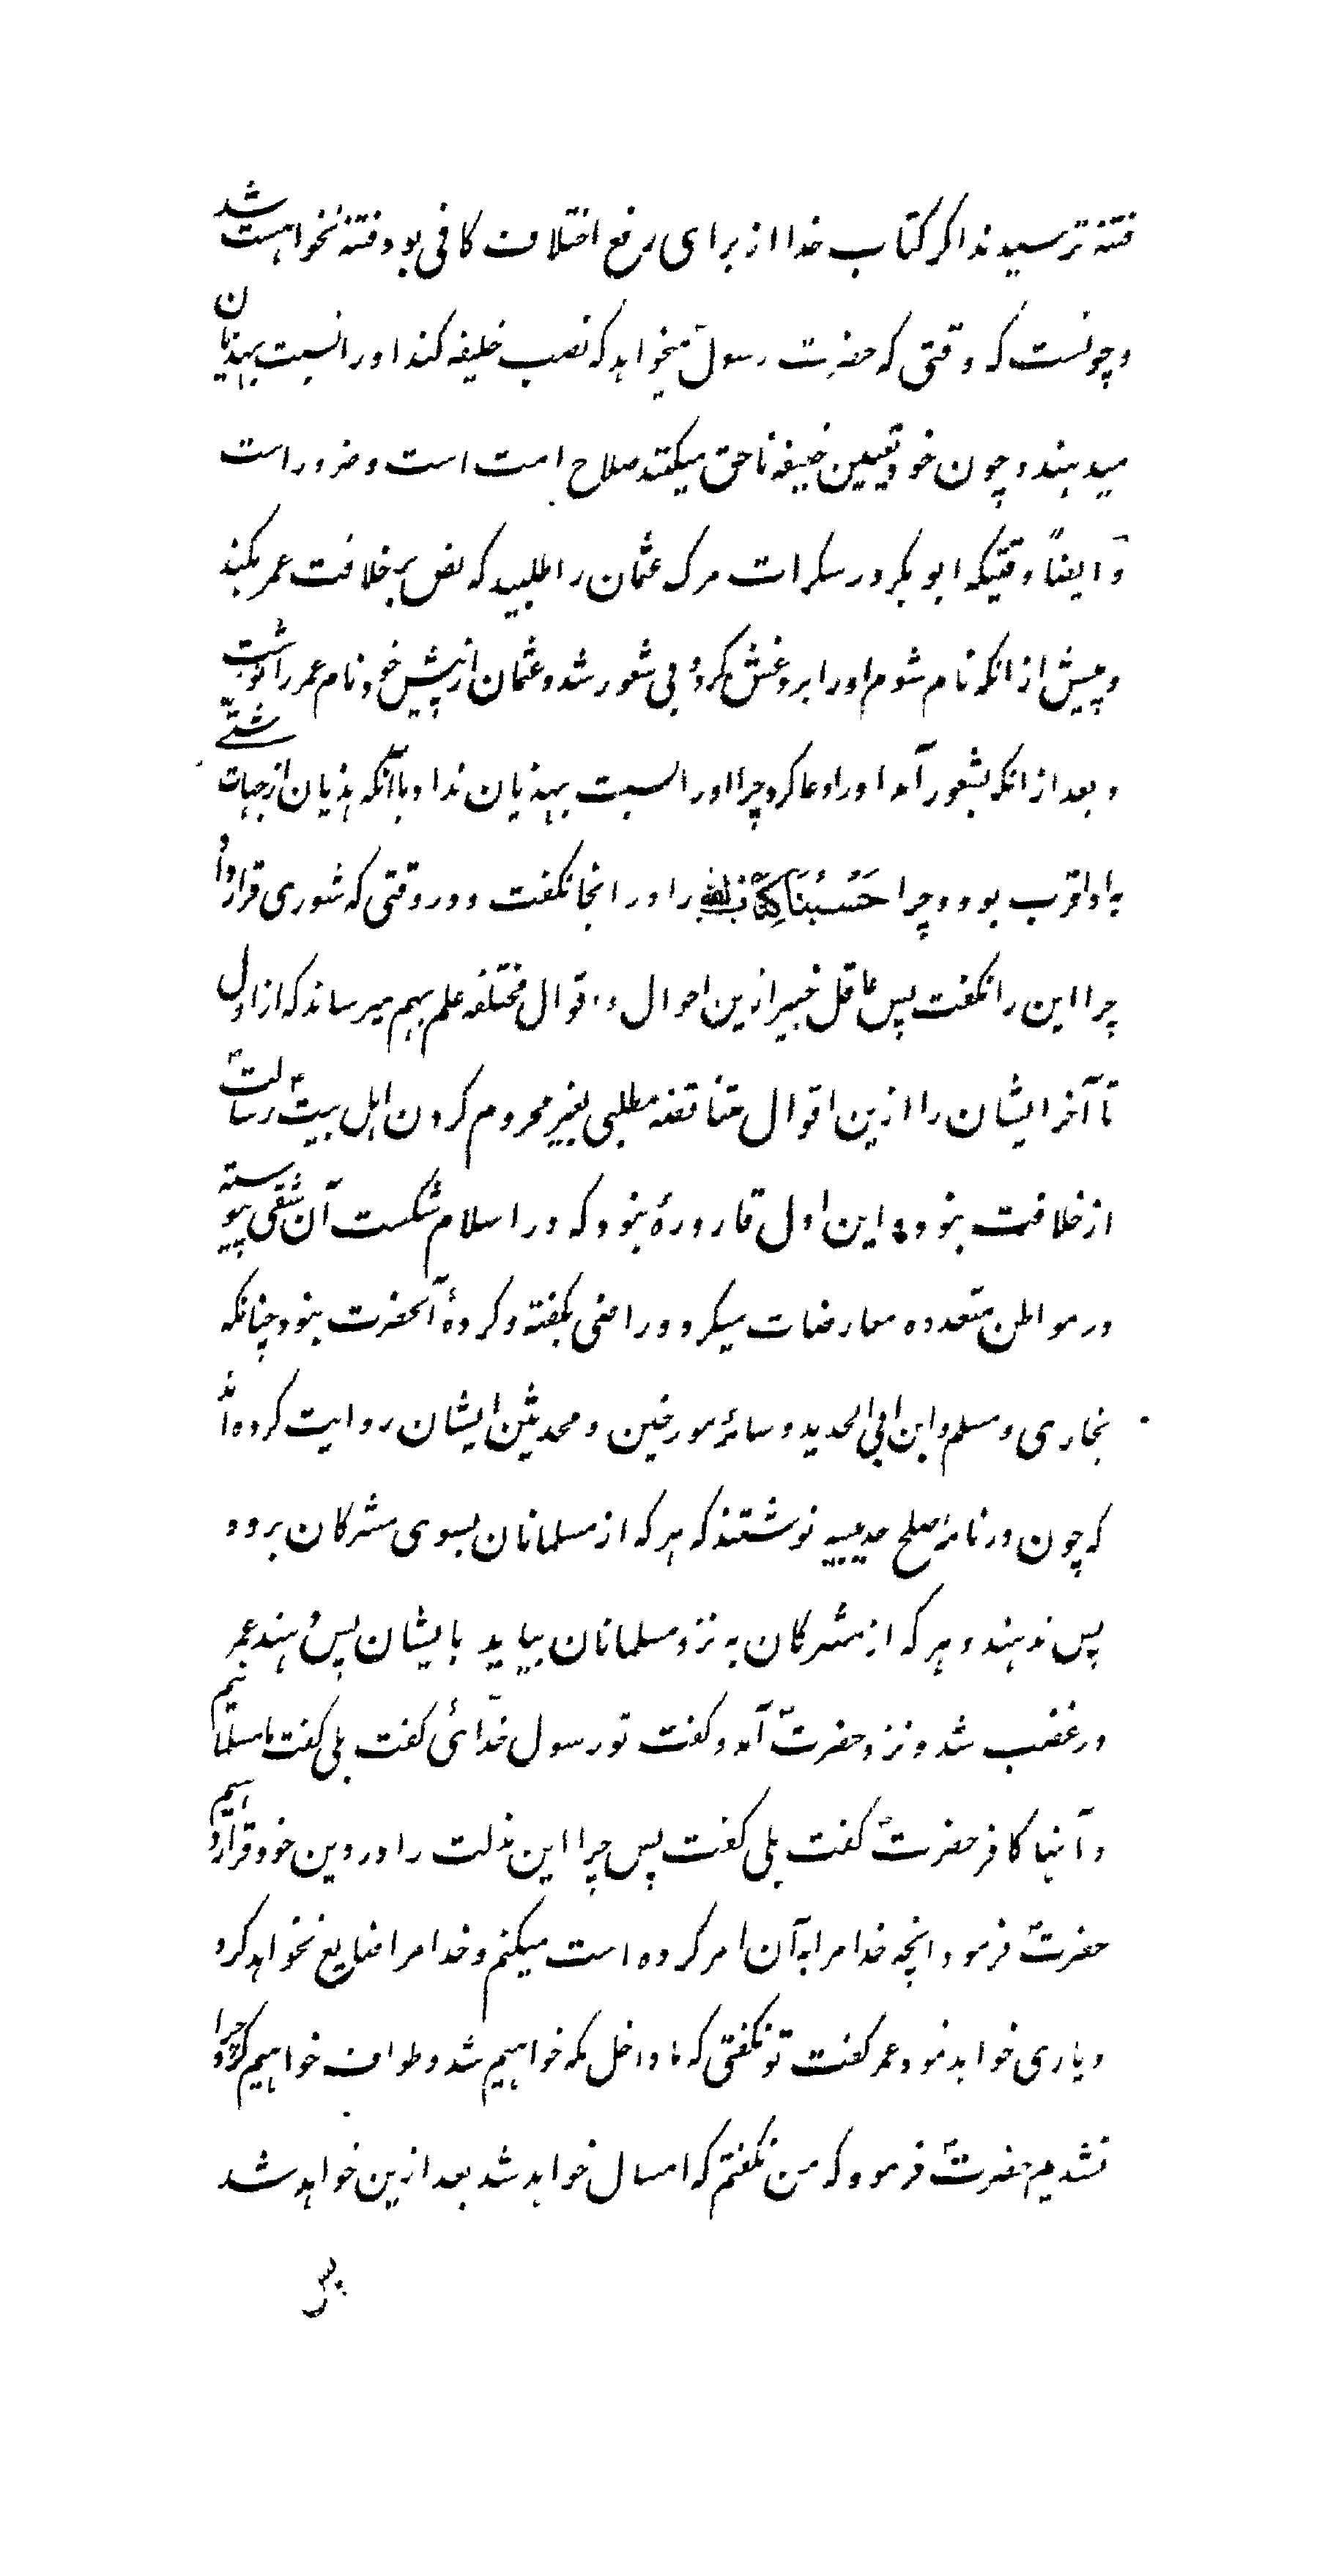 فتنه ترسیدند اگر کتاب خدا از برای رفع اختلاف کافی بود فتنه نخواهست شد
و چونست که وقتی که حضرت رسولؐ میخواهد که نصب خلیفه کند او را نسبت بهذیان
میدهند و چون خود تعیین خلیفه ناحق میکنند صلاح امت است و ضرور است
و ایضاً وقتیکه ابو بکر در سکرات مرک عثمان را طلبید که نص بر خلافت عمر بکند
و پیش از انکه نام شوم او را برد غش کرد و بی شعور شد و عثمان از پیش خود نام عمر را نوشت
و بعد از انکه بشعور آمد او را دعا کرد چرا او را نسبت بهذیان نداد با آنکه هذیان از جهات شتّے
به او اقرب بود و چرا حَسْبُنَا كِتَابُ اللهِ را در انجا نکفت و در وقتی که شوری قرار داد
چرا این را نکفت پس عاقل خبیر ازین احوال و اقوال مختلفه علم بهم میرساند که از اول
تا آخر ایشان را ازین اقوال متناقضه مطلبی بغیر محروم کردن اهل بیتؑ رسالتؐ
از خلافت نبود و این اول قارورهٔ نبود که در اسلام شکست آن شقی پیوسته
در مواطن متعدده معارضات میکرد و راضی بکفته و کردهٔ آنحضرت نبود چنانکه
بخاری و مسلم و ابن ابی الحدید و سائر مورخین و محدثین ایشان روایت کرده اند
که چون در نامهٔ صلح حدیبیه نوشتند که هر که از مسلمانان بسوی مشرکان برود
پس ندهند و هر که از مشرکان به نزد مسلمانان بیاید بایشان پس دهند عمر
در غضب شد و نزد حضرتؐ آمد و کفت تو رسول خدائی کفت بلی کفت ما مسلمانیم
و آنها کافر حضرتؐ کفت بلی کفت پس چرا این مذلت را در دین خود قرار دهیم
حضرتؐ فرمود انچه خدا مرا به آن امر کرده است میکنم و خدا مرا ضایع نخواهد کرد
و یاری خواهد نمود عمر کفت تو نکفتی که ما داخل مکه خواهیم شد و طواف خواهیم کرد چرا
نشدیم حضرتؐ فرمود که من نکفتم که امسال خواهد شد بعد ازین خواهد شد